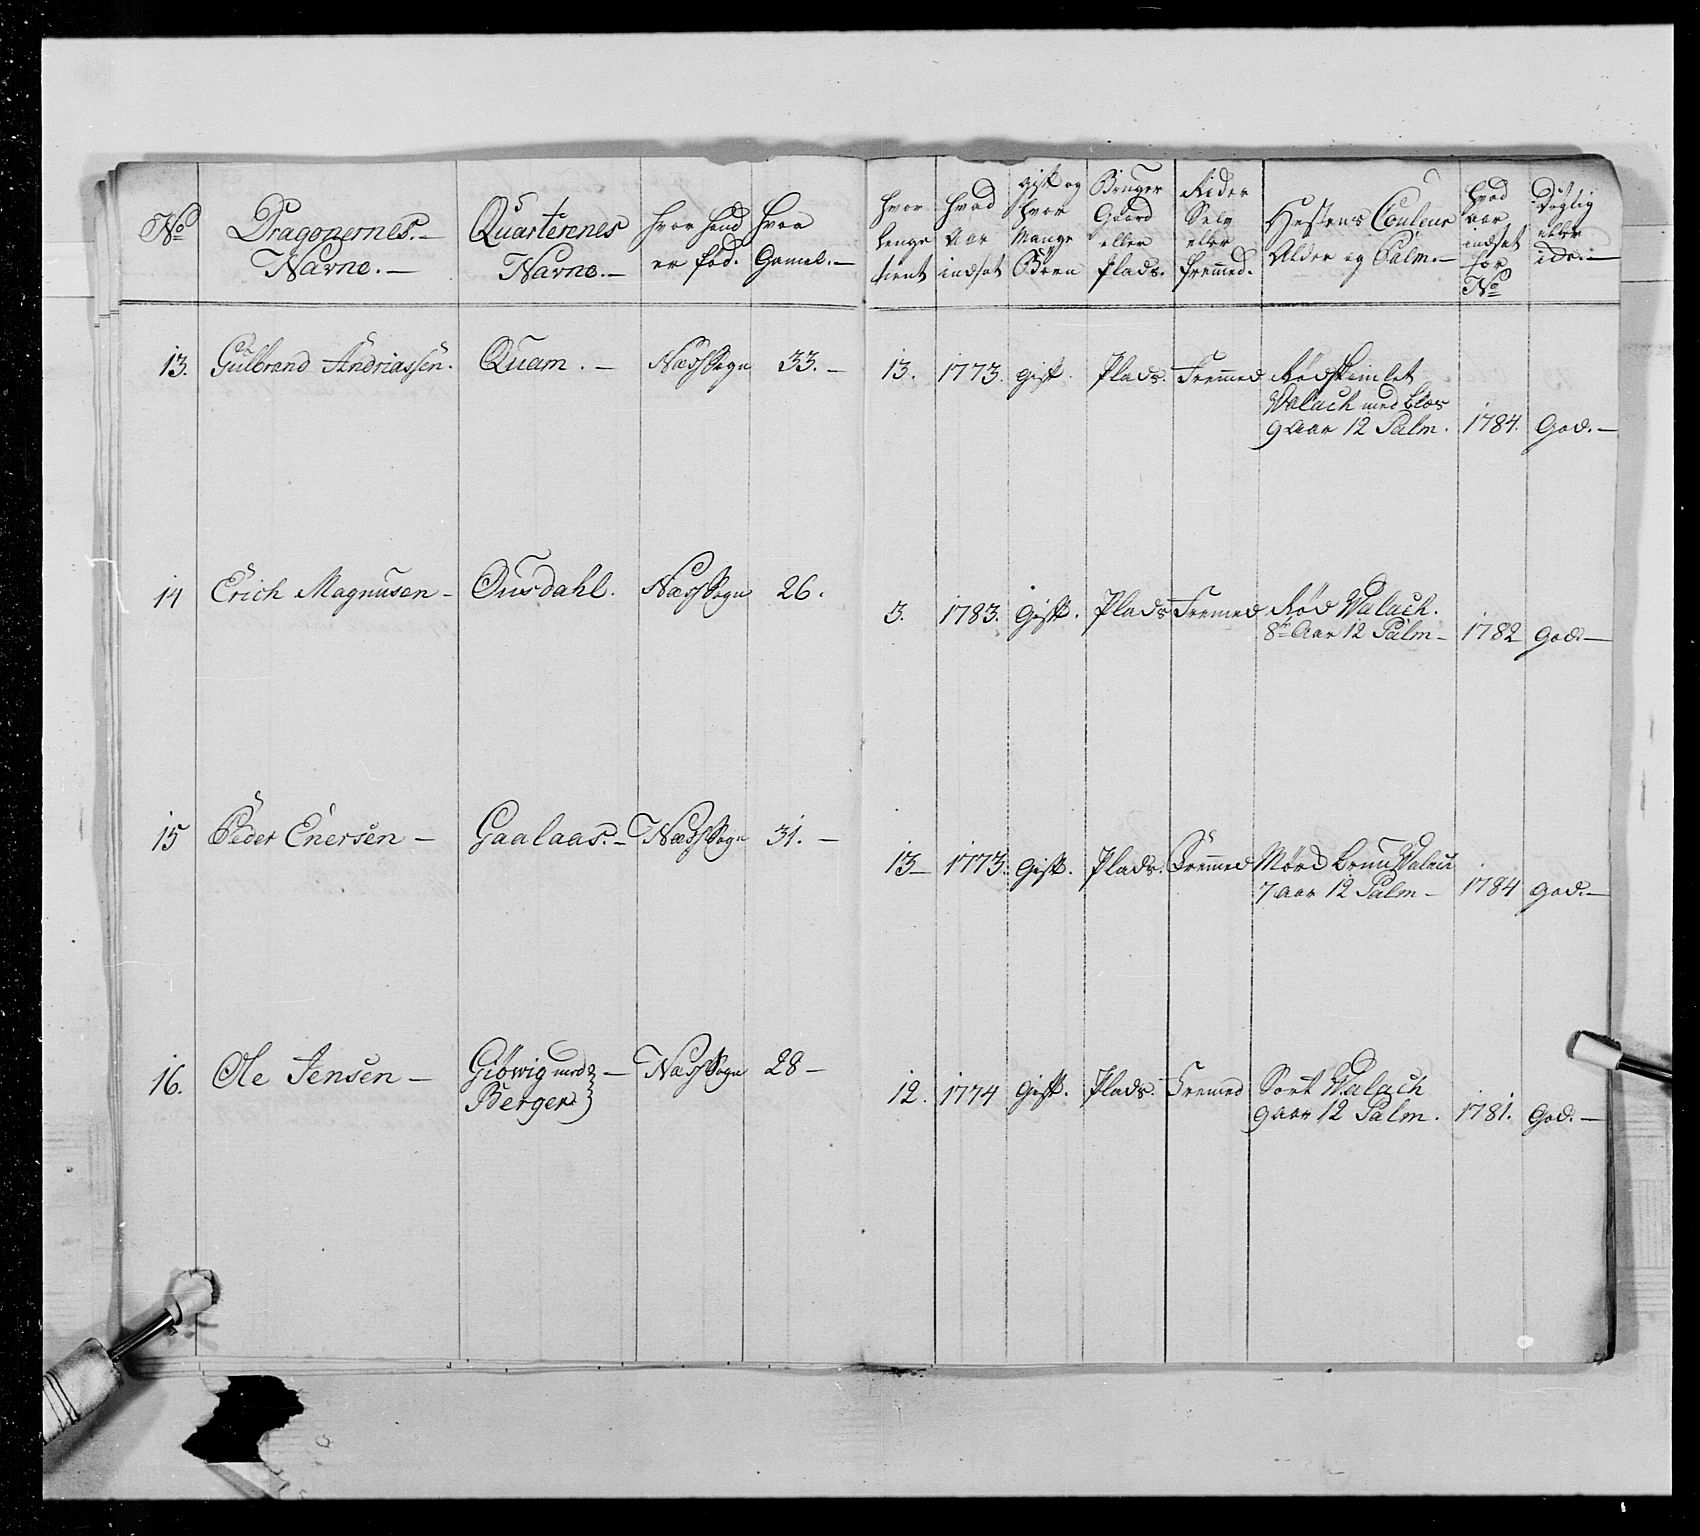 No
Dragonernes.—
Navne.—
Quarterenes
Navne.—
hvor hand
er fød.
Hvor
Gamel.—
hvor
lenge
tient
hvad
Aar
indsat
gift og
hvor
Mange
Børn
Bruger
Gaard
eller
Plads.
Rider
Selv
eller
fremmed.
Hestens Couleur
Alder og Palm.—
hvad
aar
indsat
for
No
Døglig
eller
ide.—
13. Gulbrand Andriassen. Quam.— Næss Sogn 33.— 13. 1773. gift. Plads. Fremmed Rødskimlet
Walach med blæs
9 Aar 12 Palm. 1784. God.—
14 Erich Magnusen— Ousdahl. Næss Sogn 26. 3. 1783. Gift. Plads Fremmed Rød Walach.
8te Aar 12 Palm— 1782 God.—
15 Peder Enersen— Gaalaas.— Næss Sogn 31.— 13— 1773. Gift. Plads. Fremmed Mørd Brun Walach
7 aar 12 Palm— 1784 God.—
16. Ole Jensen— Gibwig med— Næss Sogn 28— 12. 1774 Gift. Plads. Fremed Sort Walach
Berger 9 aar 12 Palm. 1781. God.—